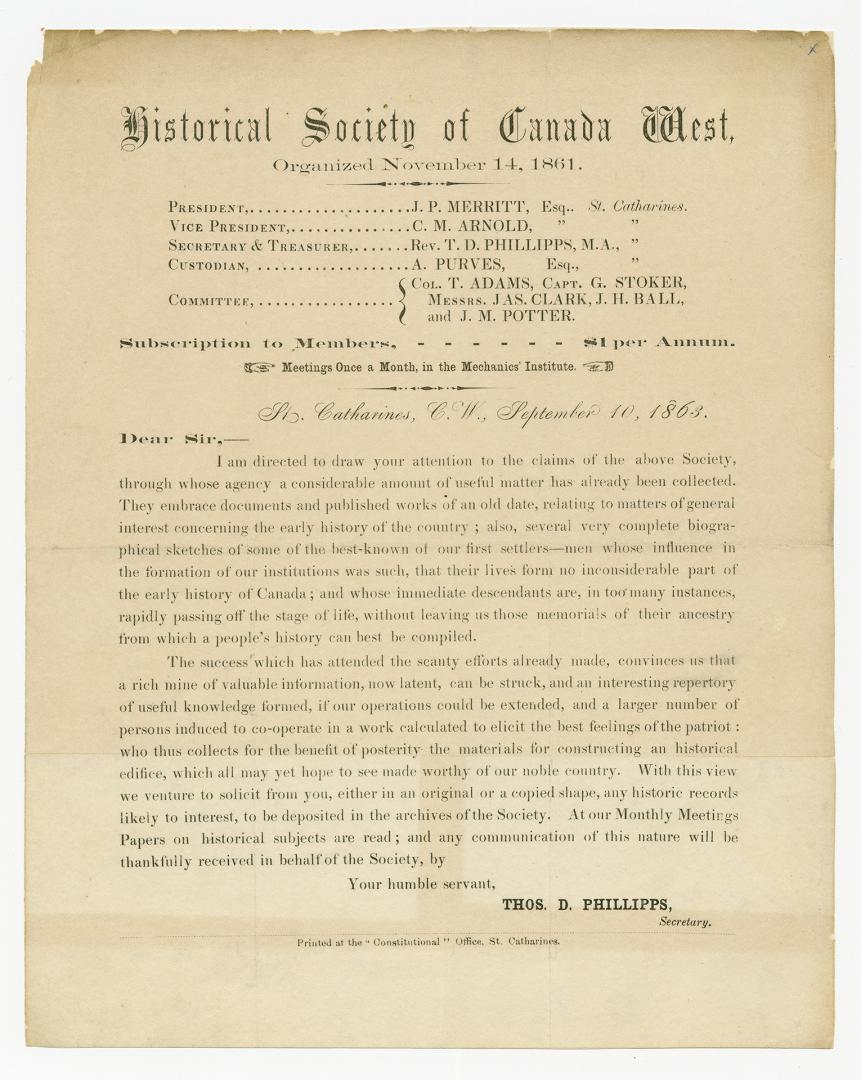 Historical Society of Canada West,
Organized November 14, 1861.
PRESIDENT,.....................J. P. MERRITT, Esq.. St. Catharines.
VICE PRESIDENT,...............C. M. ARNOLD, " "
SECRETARY & TREASURER,.......Rev. T. D. PHILLIPPS, M.A., "
CUSTODIAN, ...................A. PURVES, Esq., "
COL. T. ADAMS, CAPT. G. STOKER,
COMMITTEE,................. { MESSRS. JAS. CLARK, J. H. BALL,
and J. M. POTTER.
Subscription to Members, - - - - - - $1 per Annum.
☞ Meetings Once a Month, in the Mechanics' Institute. ☜
St. Catharines, C. W., September 10, 1863.
Dear Sir,—
I am directed to draw your attention to the claims of the above Society,
through whose agency a considerable amount of useful matter has already been collected.
They embrace documents and published works of an old date, relating to matters of general
interest concerning the early history of the country ; also, several very complete biogra-
phical sketches of some of the best-known of our first settlers—men whose influence in
the formation of our institutions was such, that their lives form no inconsiderable part of
the early history of Canada ; and whose immediate descendants are, in too many instances,
rapidly passing off the stage of life, without leaving us those memorials of their ancestry
from which a people's history can best be compiled.
The success which has attended the scanty efforts already made, convinces us that
a rich mine of valuable information, now latent, can be struck, and an interesting repertory
of useful knowledge formed, if our operations could be extended, and a larger number of
persons induced to co-operate in a work calculated to elicit the best feelings of the patriot :
who thus collects for the benefit of posterity the materials for constructing an historical
edifice, which all may yet hope to see made worthy of our noble country. With this view
we venture to solicit from you, either in an original or a copied shape, any historic records
likely to interest, to be deposited in the archives of the Society. At our Monthly Meetings
Papers on historical subjects are read ; and any communication of this nature will be
thankfully received in behalf of the Society, by
Your humble servant,
THOS. D. PHILLIPPS,
Secretary.
Printed at the " Constitutional " Office, St. Catharines.